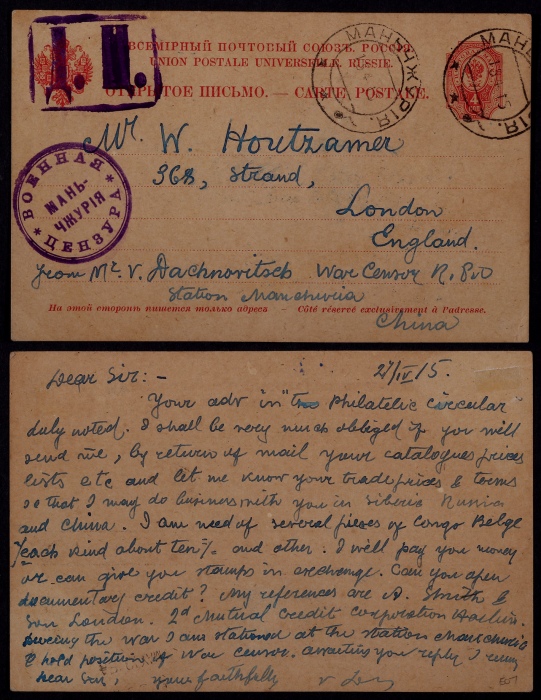 Д. Ц.
ВСЕМІРНЫЙ ПОЧТОВЫЙ СОЮЗЪ. РОССІЯ.
UNION POSTALE UNIVERSELLE. RUSSIE.
ОТКРЫТОЕ ПИСЬМО. — CARTE POSTALE.
МАНЬЧЖУРІЯ.
МАНЬЧЖУРІЯ.
Mr. W. Houtzamer
368, Strand,
London
England.
ВОЕННАЯ
МАНЬ-
ЧЖУРІЯ
ЦЕНЗУРА
from Mr. V. Dachnovitsch War Censor R.
Station Manchuria
China
На этой сторонѣ пишется только адресъ — Côté réservé exclusivement à l'adresse.
Dear Sir:- 27/IV 15.
Your adv in "the Philatelic Circular
duly noted. I shall be very much obliged if you will
send me, by return of mail your catalogues prices
lists etc and let me know your trade prices & terms
so that I may do business with you in Siberia Russia
and China. I am need of several pieces of Congo Belge
/each kind about ten/- and other. I will pay you money
or can give you stamps in exchange. Can you open
documentary credit? My references are A. Smith &
Son London. 2d Mutual Credit Corporation Harbin.
During the war I am stationed at the station Manchuria
& hold position of War Censor. Awaiting you reply I remain
Dear Sir, yours faithfully